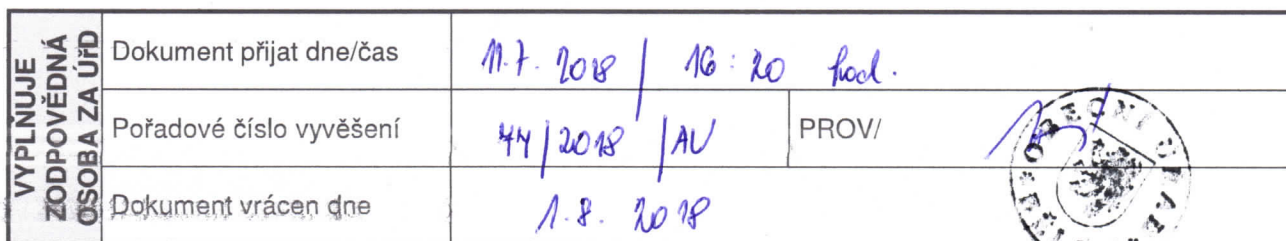 VYPLŇUJE
ZODPOVĚDNÁ
OSOBA ZA ÚŘD
Dokument přijat dne/čas 11.7. 2018 / 16:20 hod.
Pořadové číslo vyvěšení 44/2018/AV PROV/
Dokument vrácen dne 1.8. 2018
OBECNÍ ÚŘAD